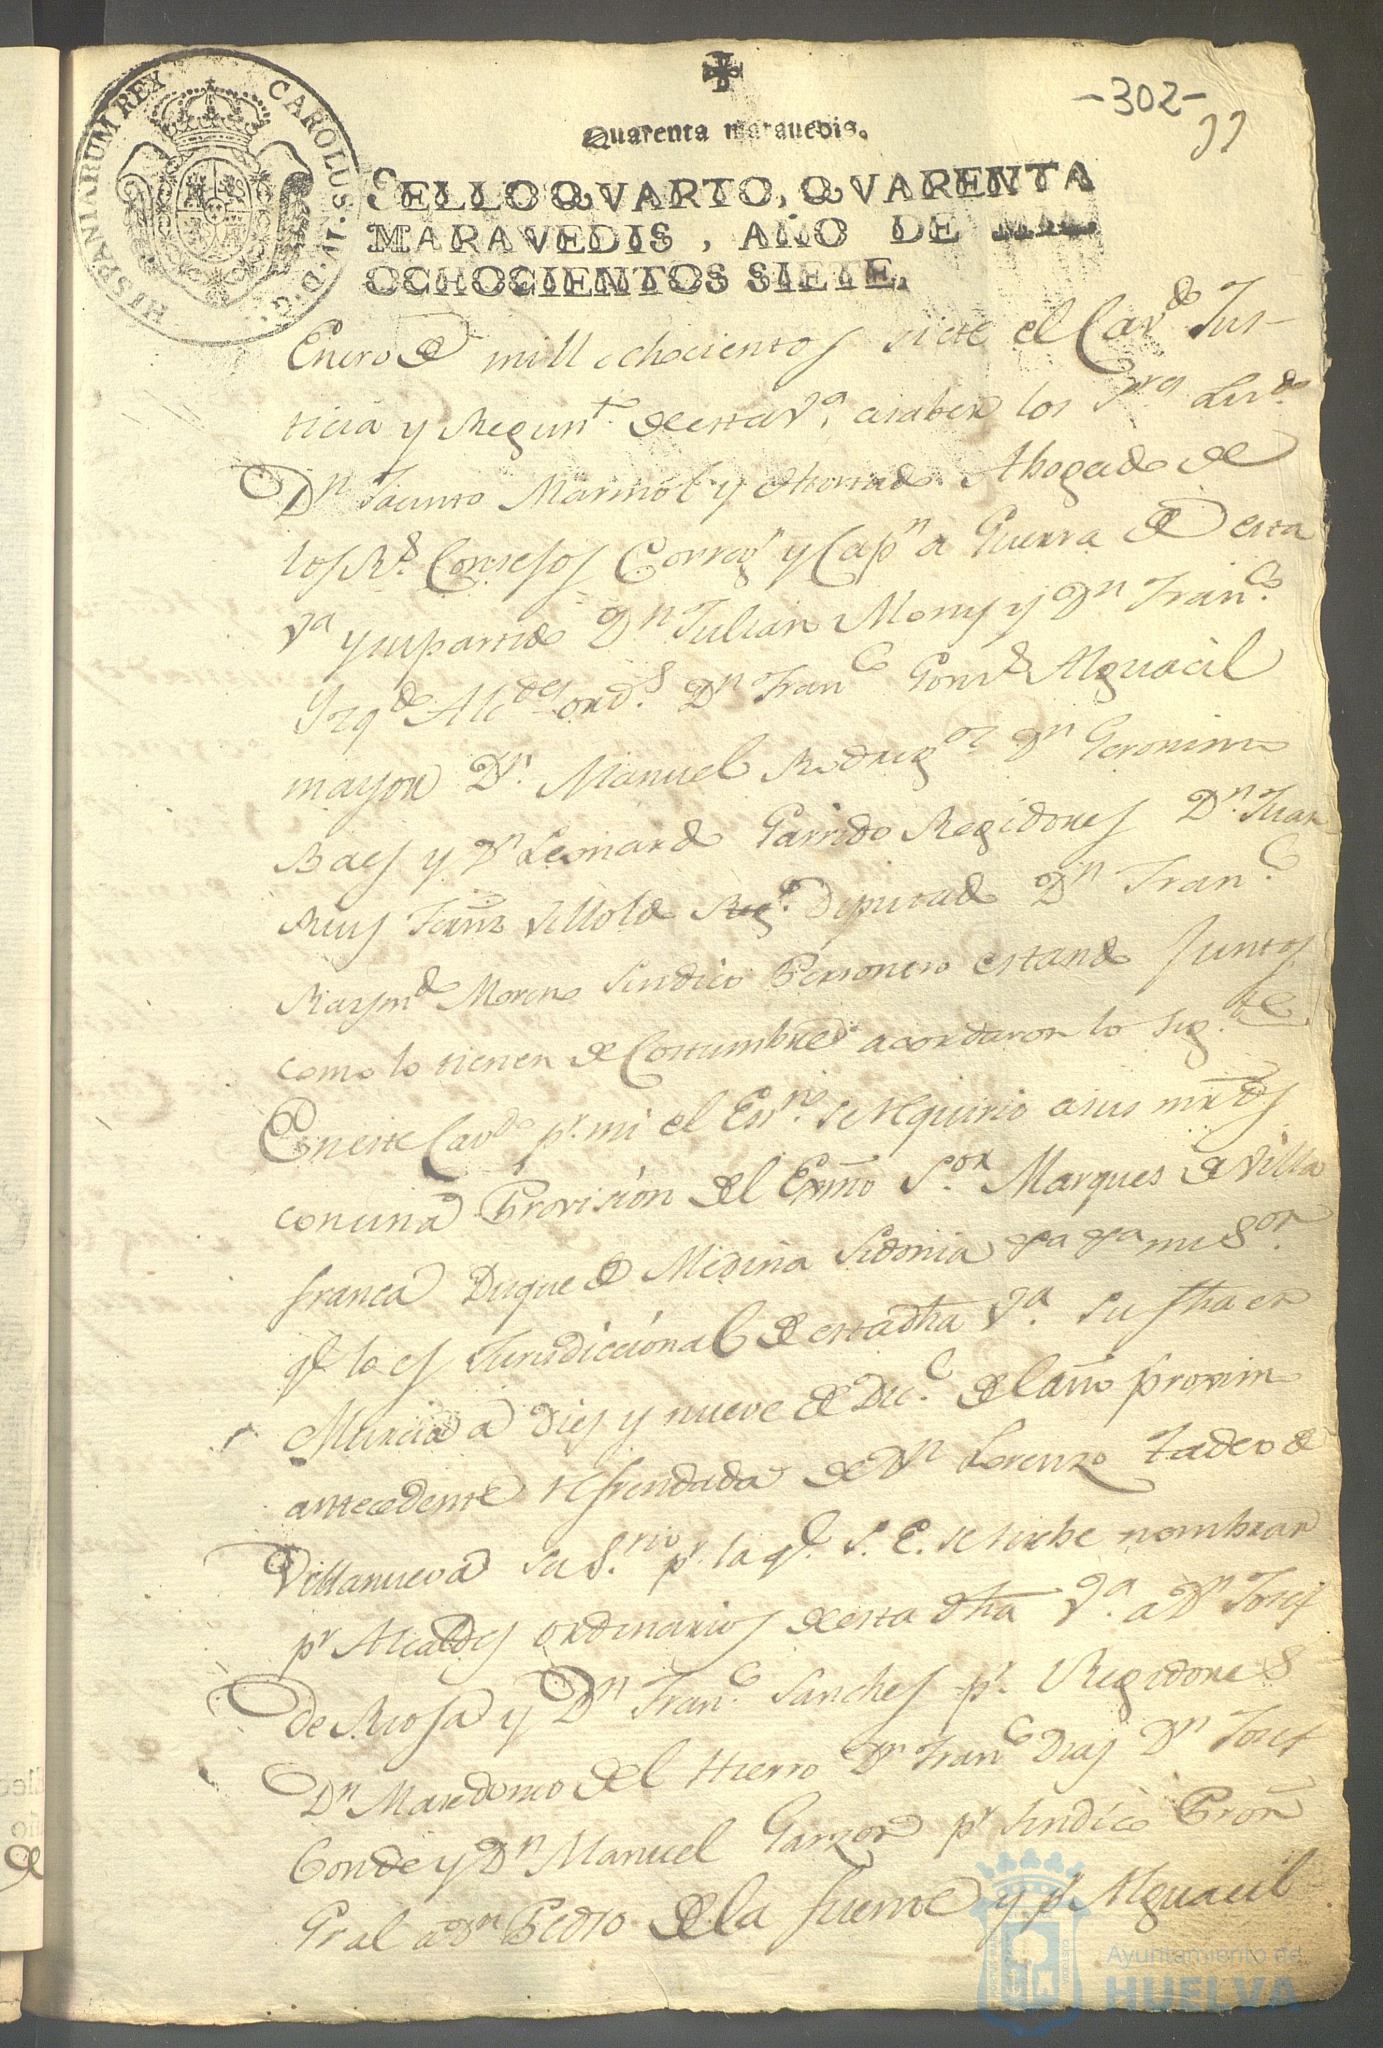 -302-
HISPANIARUM REX CAROLUS IV. D. G.
Quarenta maravedis.
SELLO QVARTO, QVARENTA
MARAVEDIS, AÑO DE MIL
OCHOCIENTOS SIETE.
Enero de mill ochocientos siete el Cavdo Jus-
ticia y Regimto de esta Va, a saber los Sres Licdo
Dn Jacinto Marmol y Hurtado Abogado de
los Rs Consejos Corregr y Capn a Guerra de esta
Va y su partido Dn Julian Mony y Dn Franco
Izqdo Alcdes ords Dn Franco Gonsz Alguacil
mayor Dn Manuel Rodrigz Dn Geronimo
Baes y Dn Leonardo Garrido Regidores Dn Juan
Ruis Fernz Dn Franco
Raymdo Moreno Sindico Personero estando Juntos
como lo tienen de Costumbre acordaron lo sigte
En este Cavdo pr mi el Essno se requirio a sus mrcds
con una Provision del Exmo Sor Marques de Villa
franca Duque de Medina Sidonia mi Sor
qe lo es Jurisdiccional de esta dha Va. su fha en
Murcia a dies y nueve de Dice del año proximo
antecedente refrendada de Dn Lorenzo Tadeo de
Villanueva su Srio pr la qe S. E. se sirbe nombrar
pr Alcaldes ordinarios de esta dha Va. a Dn Josef
de Rioja y Dn Franco Sanches pr Regidores
Dn Masedonio del Hierro Dn Franco Dias Dn Josef
Conde y Dn Manuel Garzon pr Sindico Pror
Gral a Dn Pedro de la Fuente y pr Alguacil
Ayuntamiento de
HUELVA